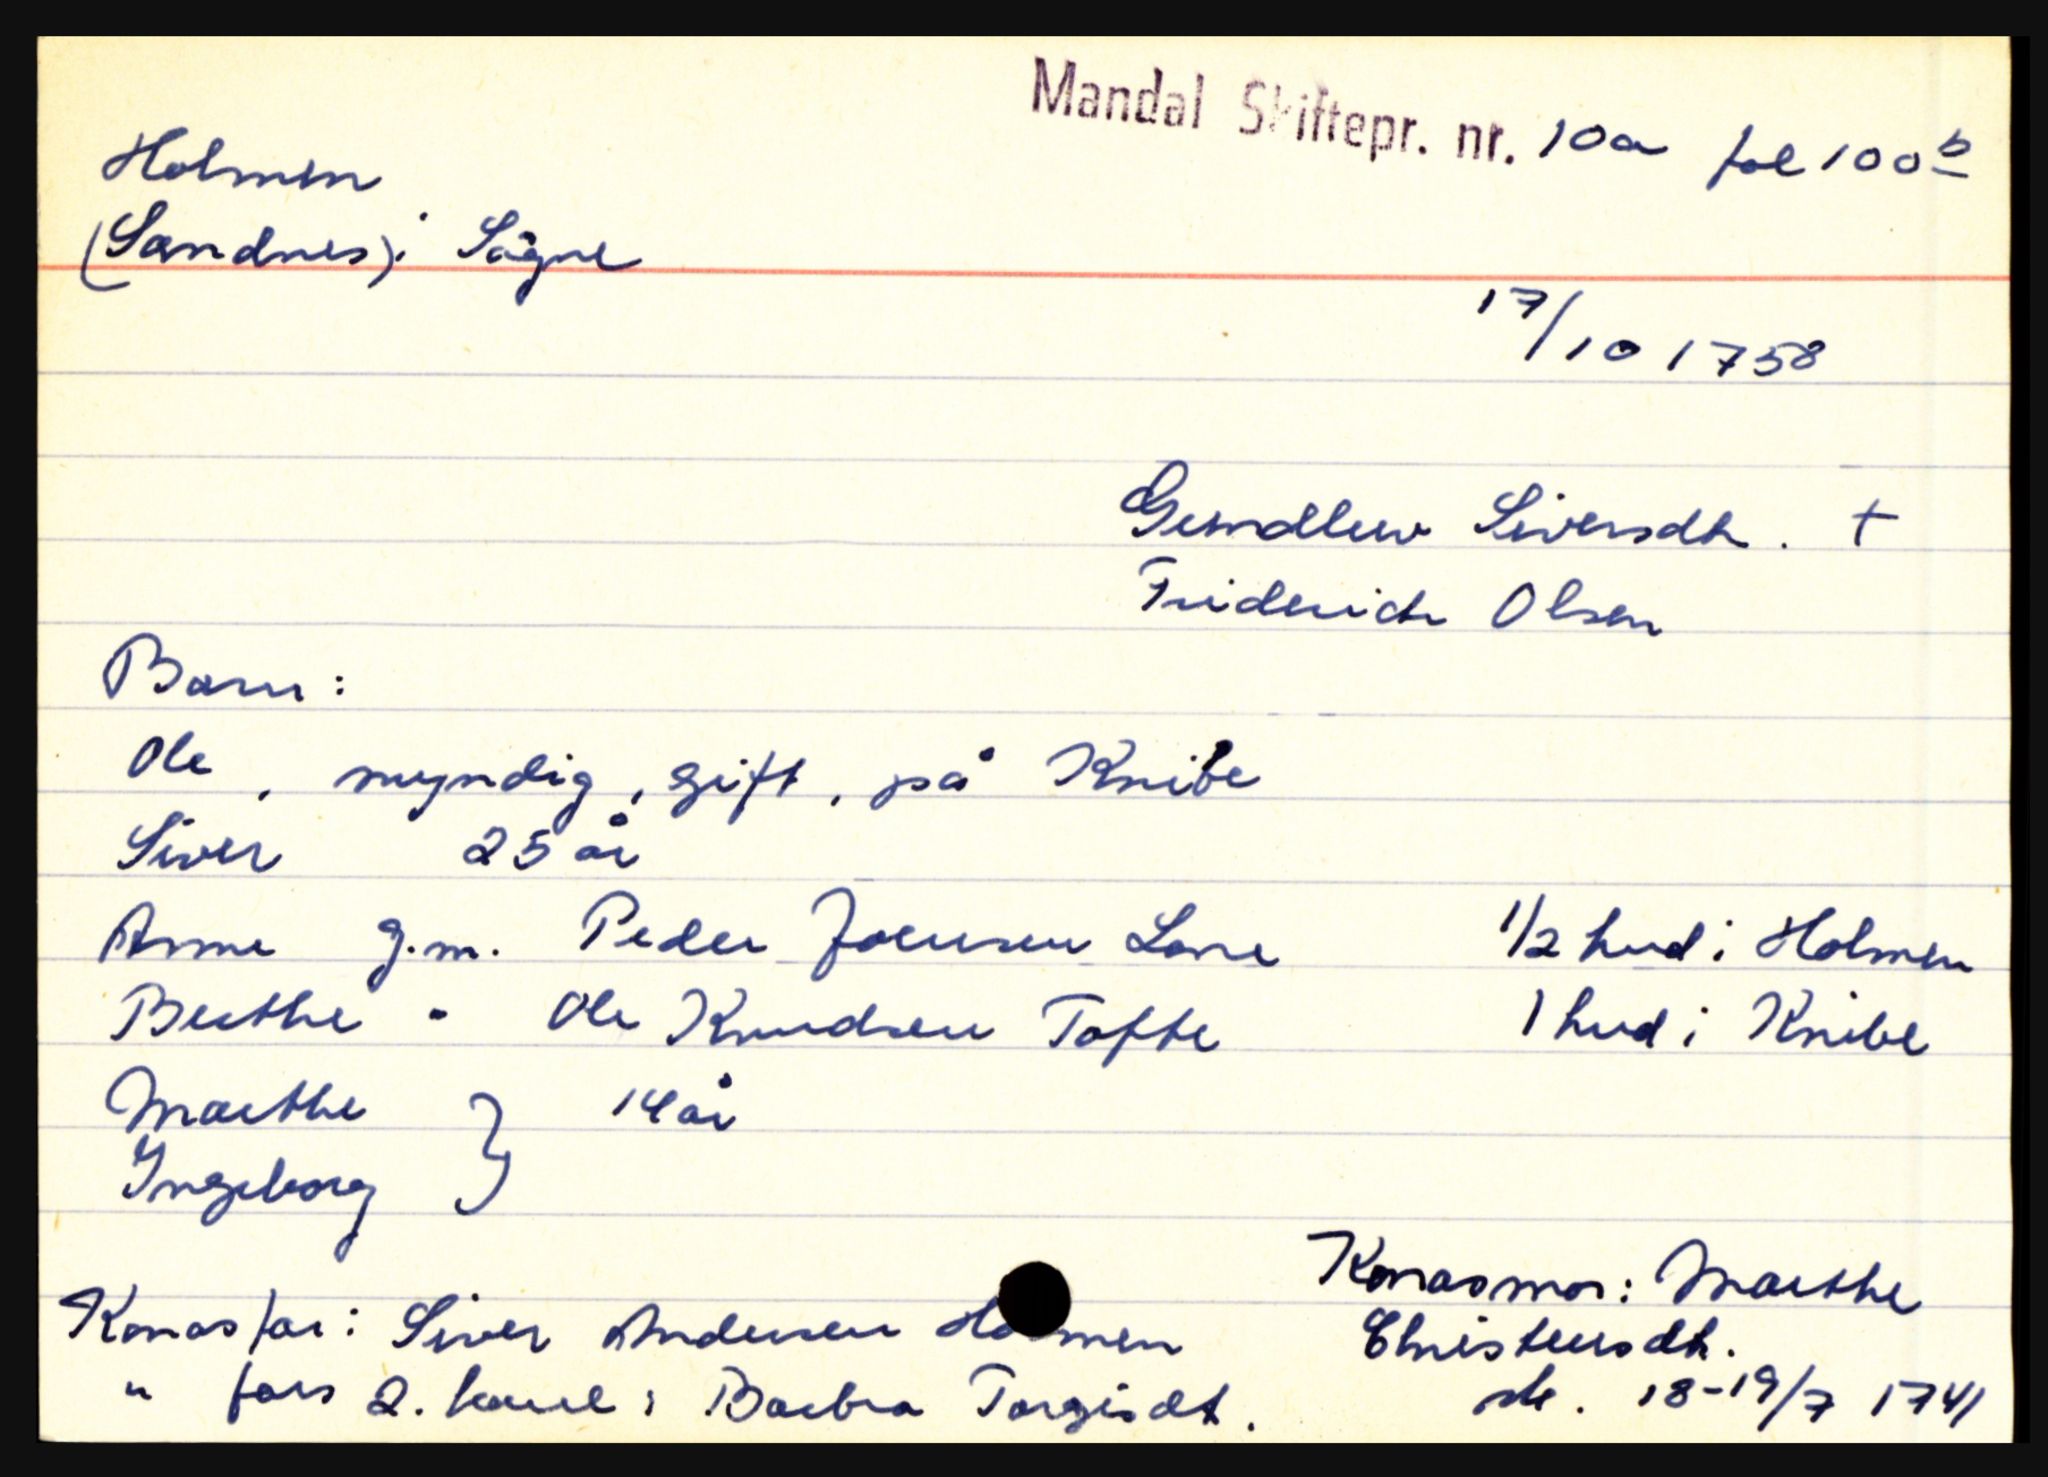 Mandal Skiftepr. nr. 10a fol 100b
Holmen
(Sandnes) i Søgne
17/10 1758
Gundlew Siversdtr. +
Friderich Olsen
Barn:
Ole, myndig, gift, på Knibe
Siver 25 år
Anne g.m. Peder Joensen Lone 1/2 hud i Holmen
Berthe " Ole Knudsen Tofte 1 hud i Knibe
Marthe } 14 år
Ingeborg
Konasmor: Marthe
Konas far: Siver Andersen Holmen Christensdtr.
" fars 2. kone: Barbra Torgisdt. sk. 18-19/7 1741